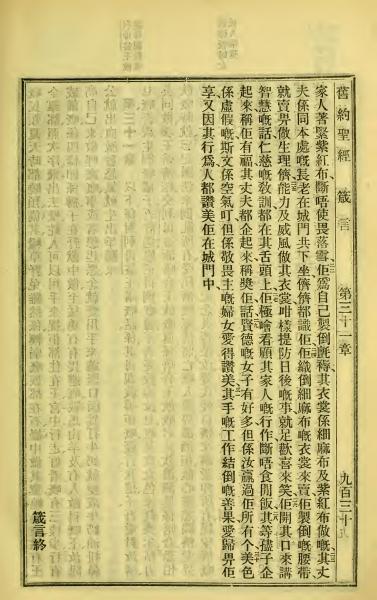 舊約聖經 箴言 第三十一章 九百三十
家人著緊紫紅布斷唔使畏落雪佢爲自己製倒氈褥其衣裳係細麻布及紫紅布做嘅其丈
夫係同本處嘅長老在城門共下坐儕儕都識佢佢織倒細麻布嘅衣裳來賣佢製倒嘅腰帶
就賣畀做生理儕能力及威風做其衣裳咁樣提防日後嘅事就足歡喜來笑佢開其口來講
智慧嘅話仁慈嘅敎訓都在其舌頭上佢極會看顧其家人嘅行作斷唔食閒飯其等孻子企
起來稱佢有福其丈夫都企起來稱獎佢話賢德嘅女子有好多但係汝贏過佢所有个美色
係虛假嘅斯文係空氣叮但係敬畏主嘅婦女愛得讚美其手嘅工作結倒嘅善果愛歸畀佢
享又因其行爲人都讚美佢在城門中
箴言終